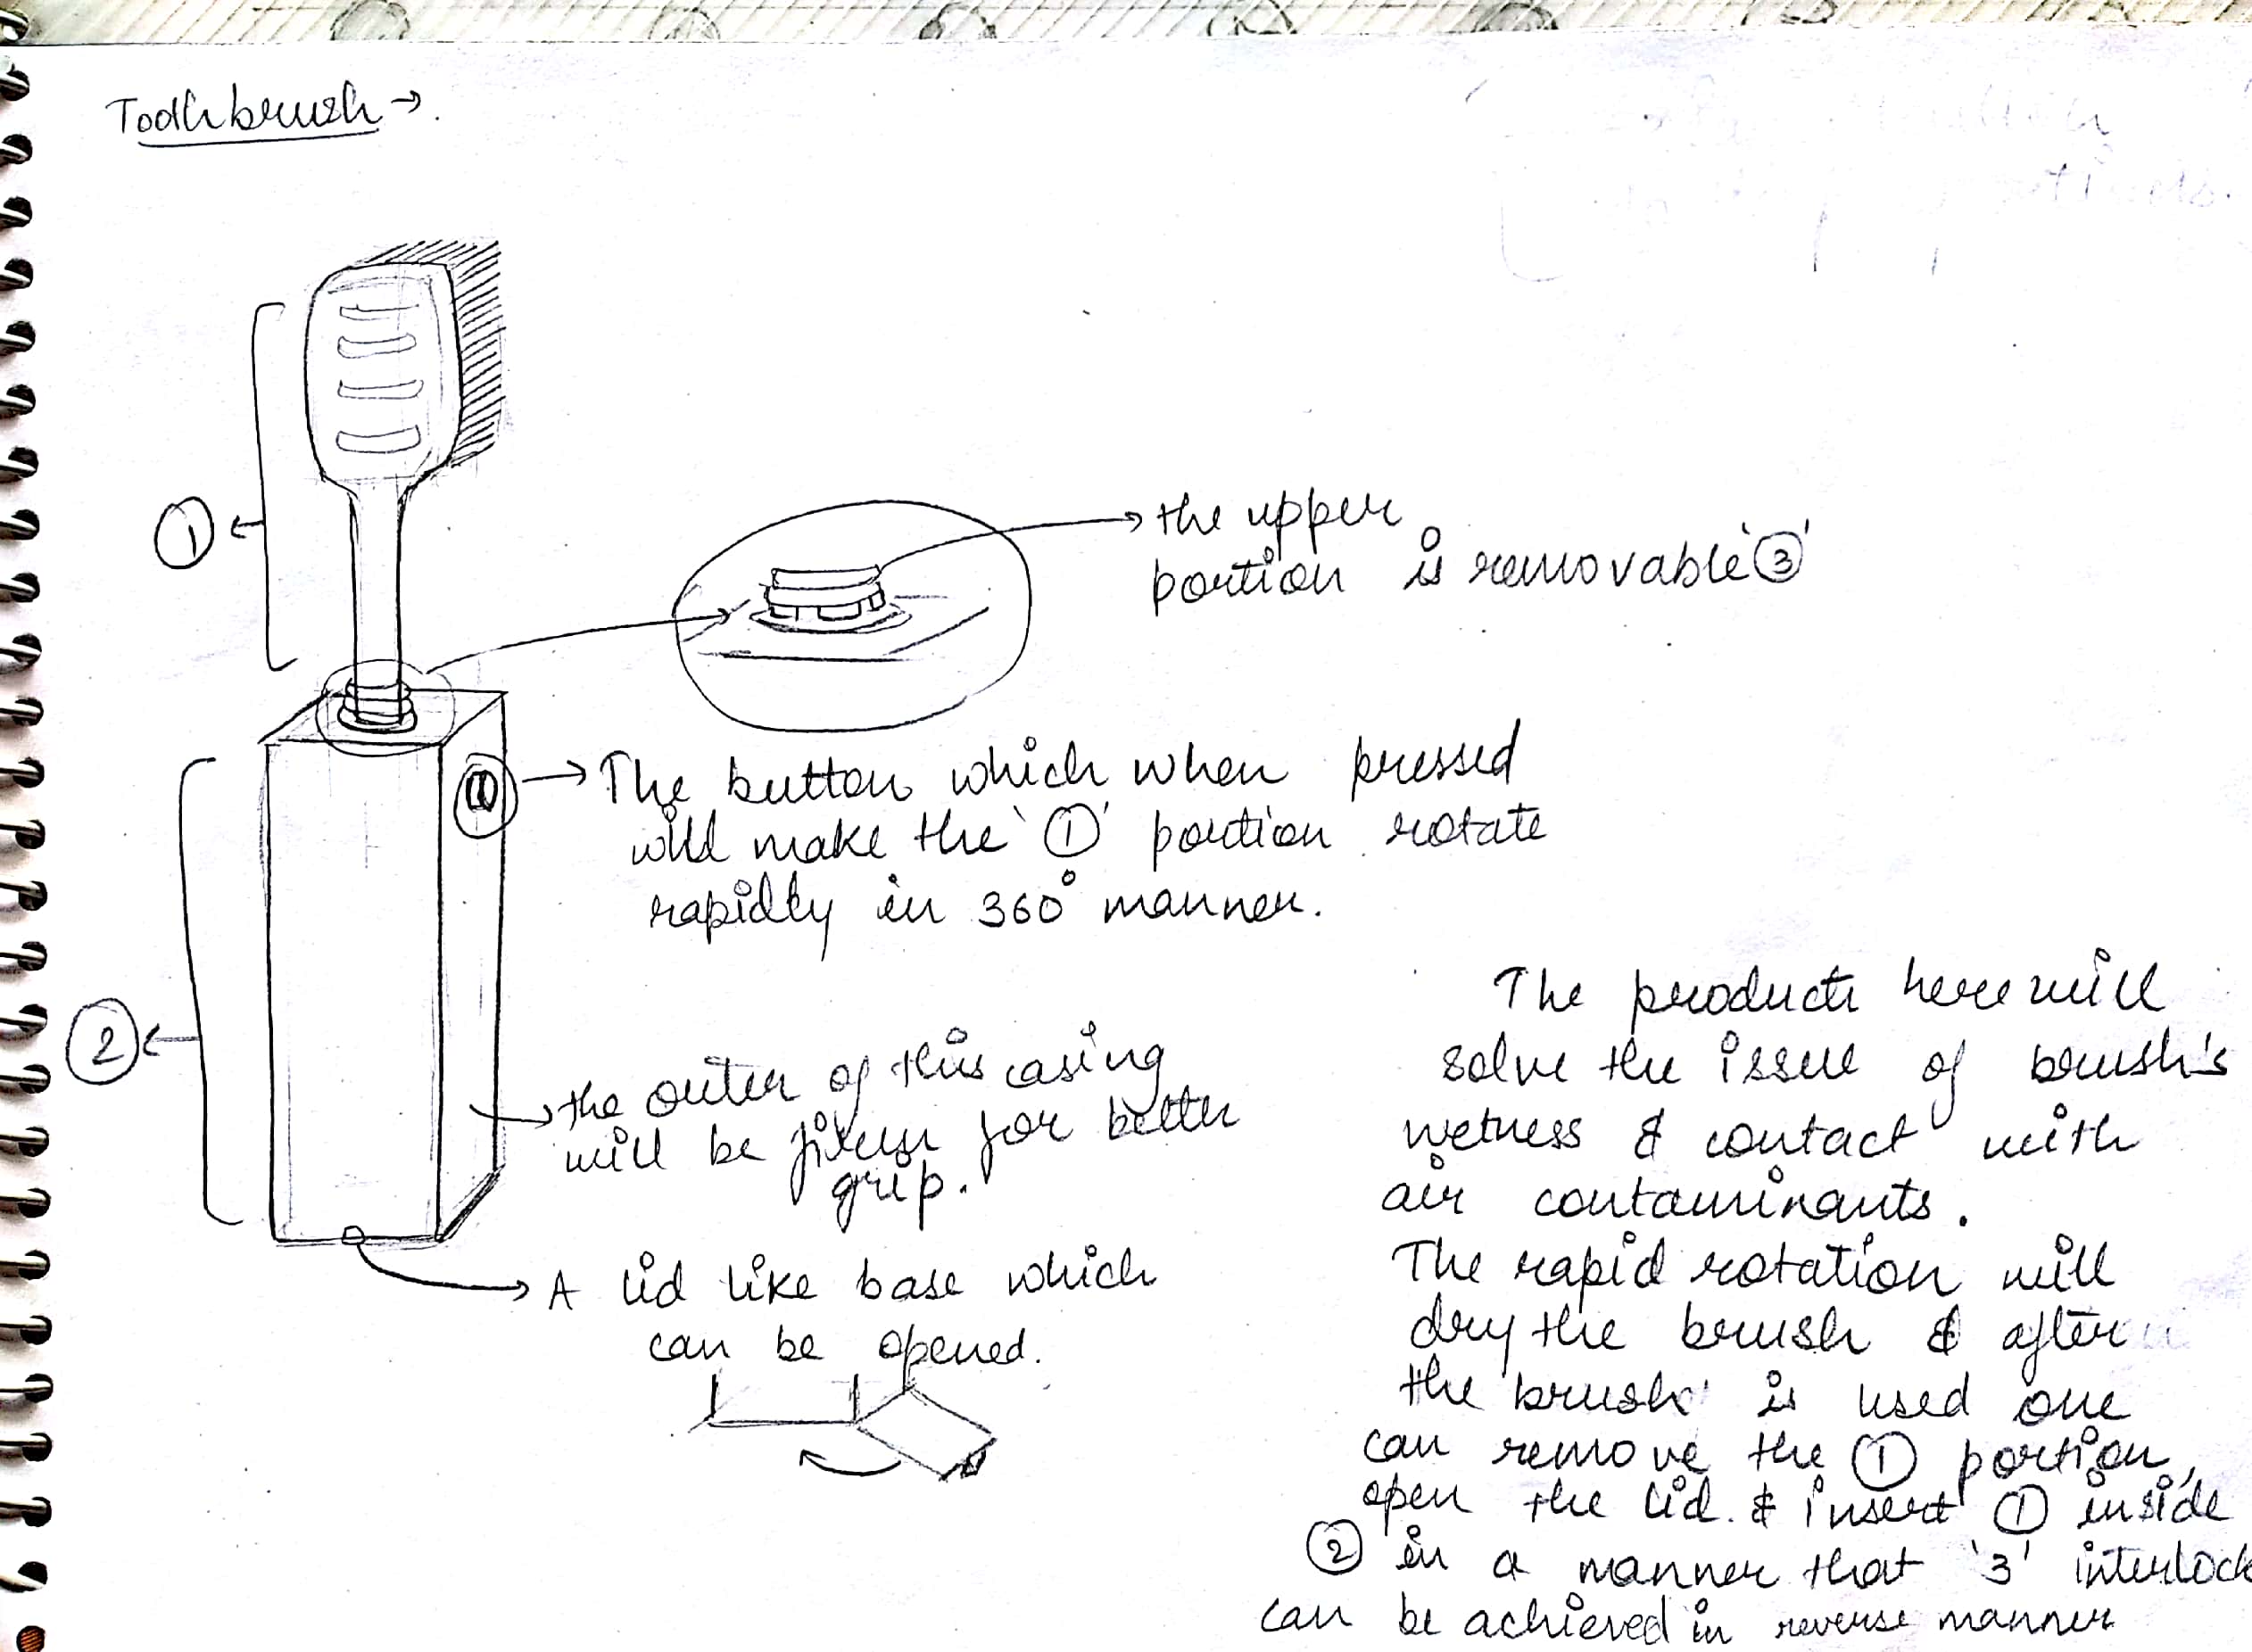 Toothbrush →.
①
the upper
portion is removable '③'
The button which when pressed
will make the '①' portion rotate
rapidly in 360° manner.
②
the outer of this casing
will be for better
grip.
A lid like base which
can be opened.
The product here will
solve the issue of brush's
wetness & contact with
air contaminants.
The rapid rotation will
dry the brush & after
the brush is used one
can remove the ① portion,
open the lid & insert ① inside
② in a manner that '3' interlock
can be achieved in reverse manner